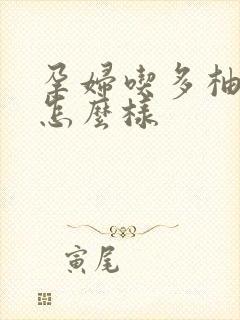 孕婦喫多柚
怎麼樣
寅尾